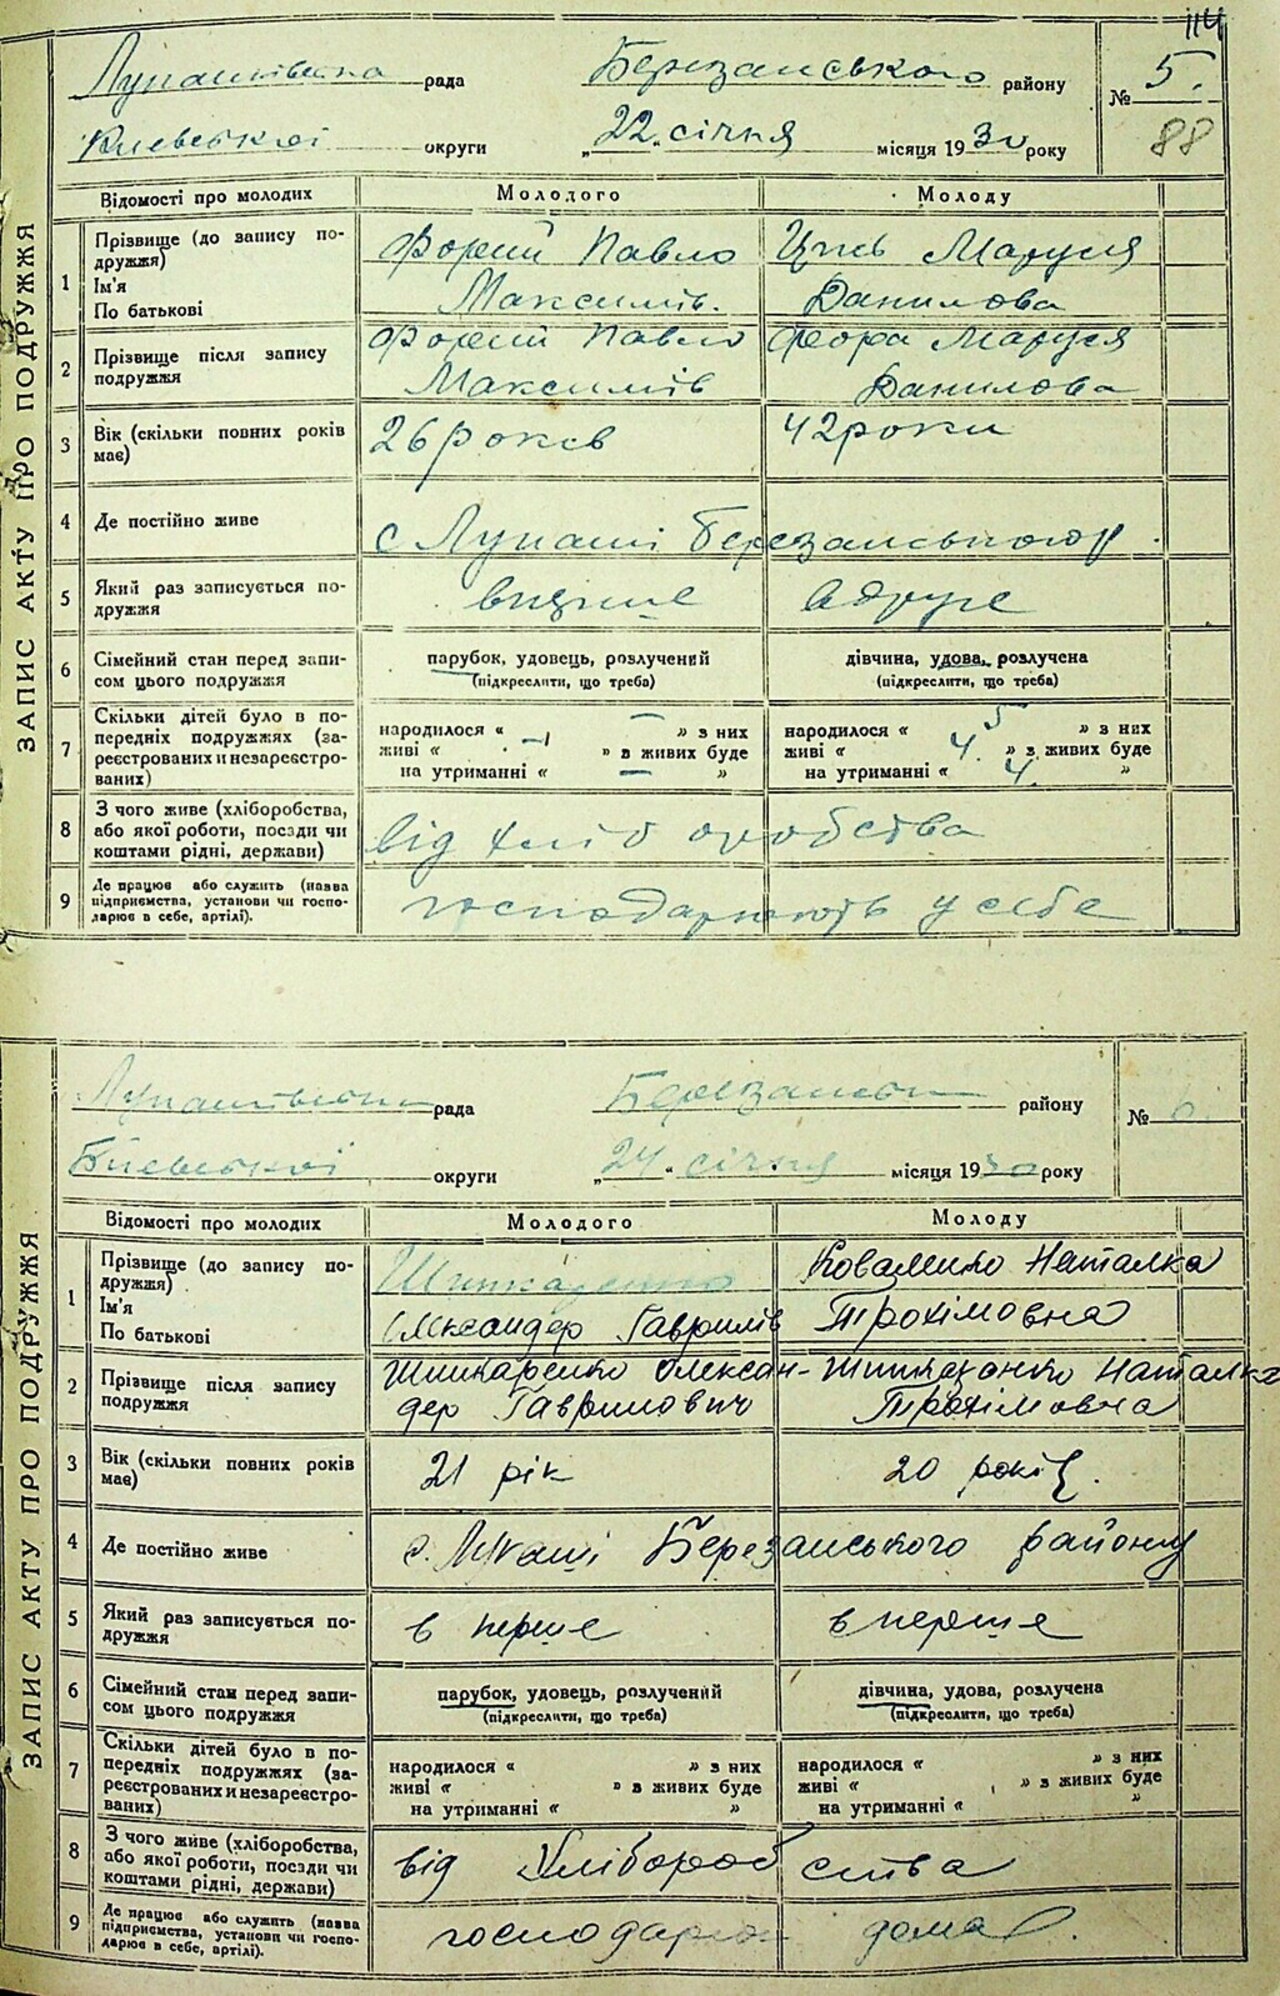 114
Лупашівська рада Березанського району № 5.
Киевської округи „22“ січня місяця 1930 року 88
ЗАПИС АКТУ ПРО ПОДРУЖЖЯ
Відомості про молодих Молодого Молоду
1 Прізвище (до запису по-
дружжя)
Ім'я
По батькові
Павло Маруся
Максимів. Данилова
2 Прізвище після запису
подружжя
Павло Маруся
Максимів Данилова
3 Вік (скільки повних років
має)
26 років 42 роки
4 Де постійно живе с Лупаші Березанського р.
5 Який раз записується по-
дружжя
вперше вдруге
6 Сімейний стан перед запи-
сом цього подружжя
парубок, удовець, розлучений дівчина, удова, розлучена
(підкреслити, що треба) (підкреслити, що треба)
7 Скільки дітей було в по-
передніх подружжях (за-
реєстрованих и незареєстро-
ваних)
народилося « — » з них народилося « 5 » з них
живі « — » з живих буде живі « 4. » з живих буде
на утриманні « — » на утриманні « 4. »
8 З чого живе (хліборобства,
або якої роботи, посади чи
коштами рідні, держави)
від хліборобства
9 Де працює або служить (назва
підприємства, установи чи госпо-
дарює в себе, артілі).
господарюють у себе
Лупашівська рада Березанськ району № 6.
Киевської округи „24“ січня місяця 1930 року
ЗАПИС АКТУ ПРО ПОДРУЖЖЯ
Відомості про молодих Молодого Молоду
1 Прізвище (до запису по-
дружжя)
Ім'я
По батькові
Шинкаренко Коваленко Наталка
Олександер Гаврилів Трохімовна
2 Прізвище після запису
подружжя
Шинкаренко Олексан- Шинкаренко Наталка
дер Гаврилович Трохімовна
3 Вік (скільки повних років
має)
21 рік 20 років.
4 Де постійно живе с. Лупаші Березанського району
5 Який раз записується по-
дружжя
в перше в перше
6 Сімейний стан перед запи-
сом цього подружжя
парубок, удовець, розлучений дівчина, удова, розлучена
(підкреслити, що треба) (підкреслити, що треба)
7 Скільки дітей було в по-
передніх подружжях (за-
реєстрованих и незареєстро-
ваних)
народилося « » з них народилося « » з них
живі « » з живих буде живі « » з живих буде
на утриманні « » на утриманні « »
8 З чого живе (хліборобства,
або якої роботи, посади чи
коштами рідні, держави)
від Хліборобства
9 Де працює або служить (назва
підприємства, установи чи госпо-
дарює в себе, артілі).
дома.